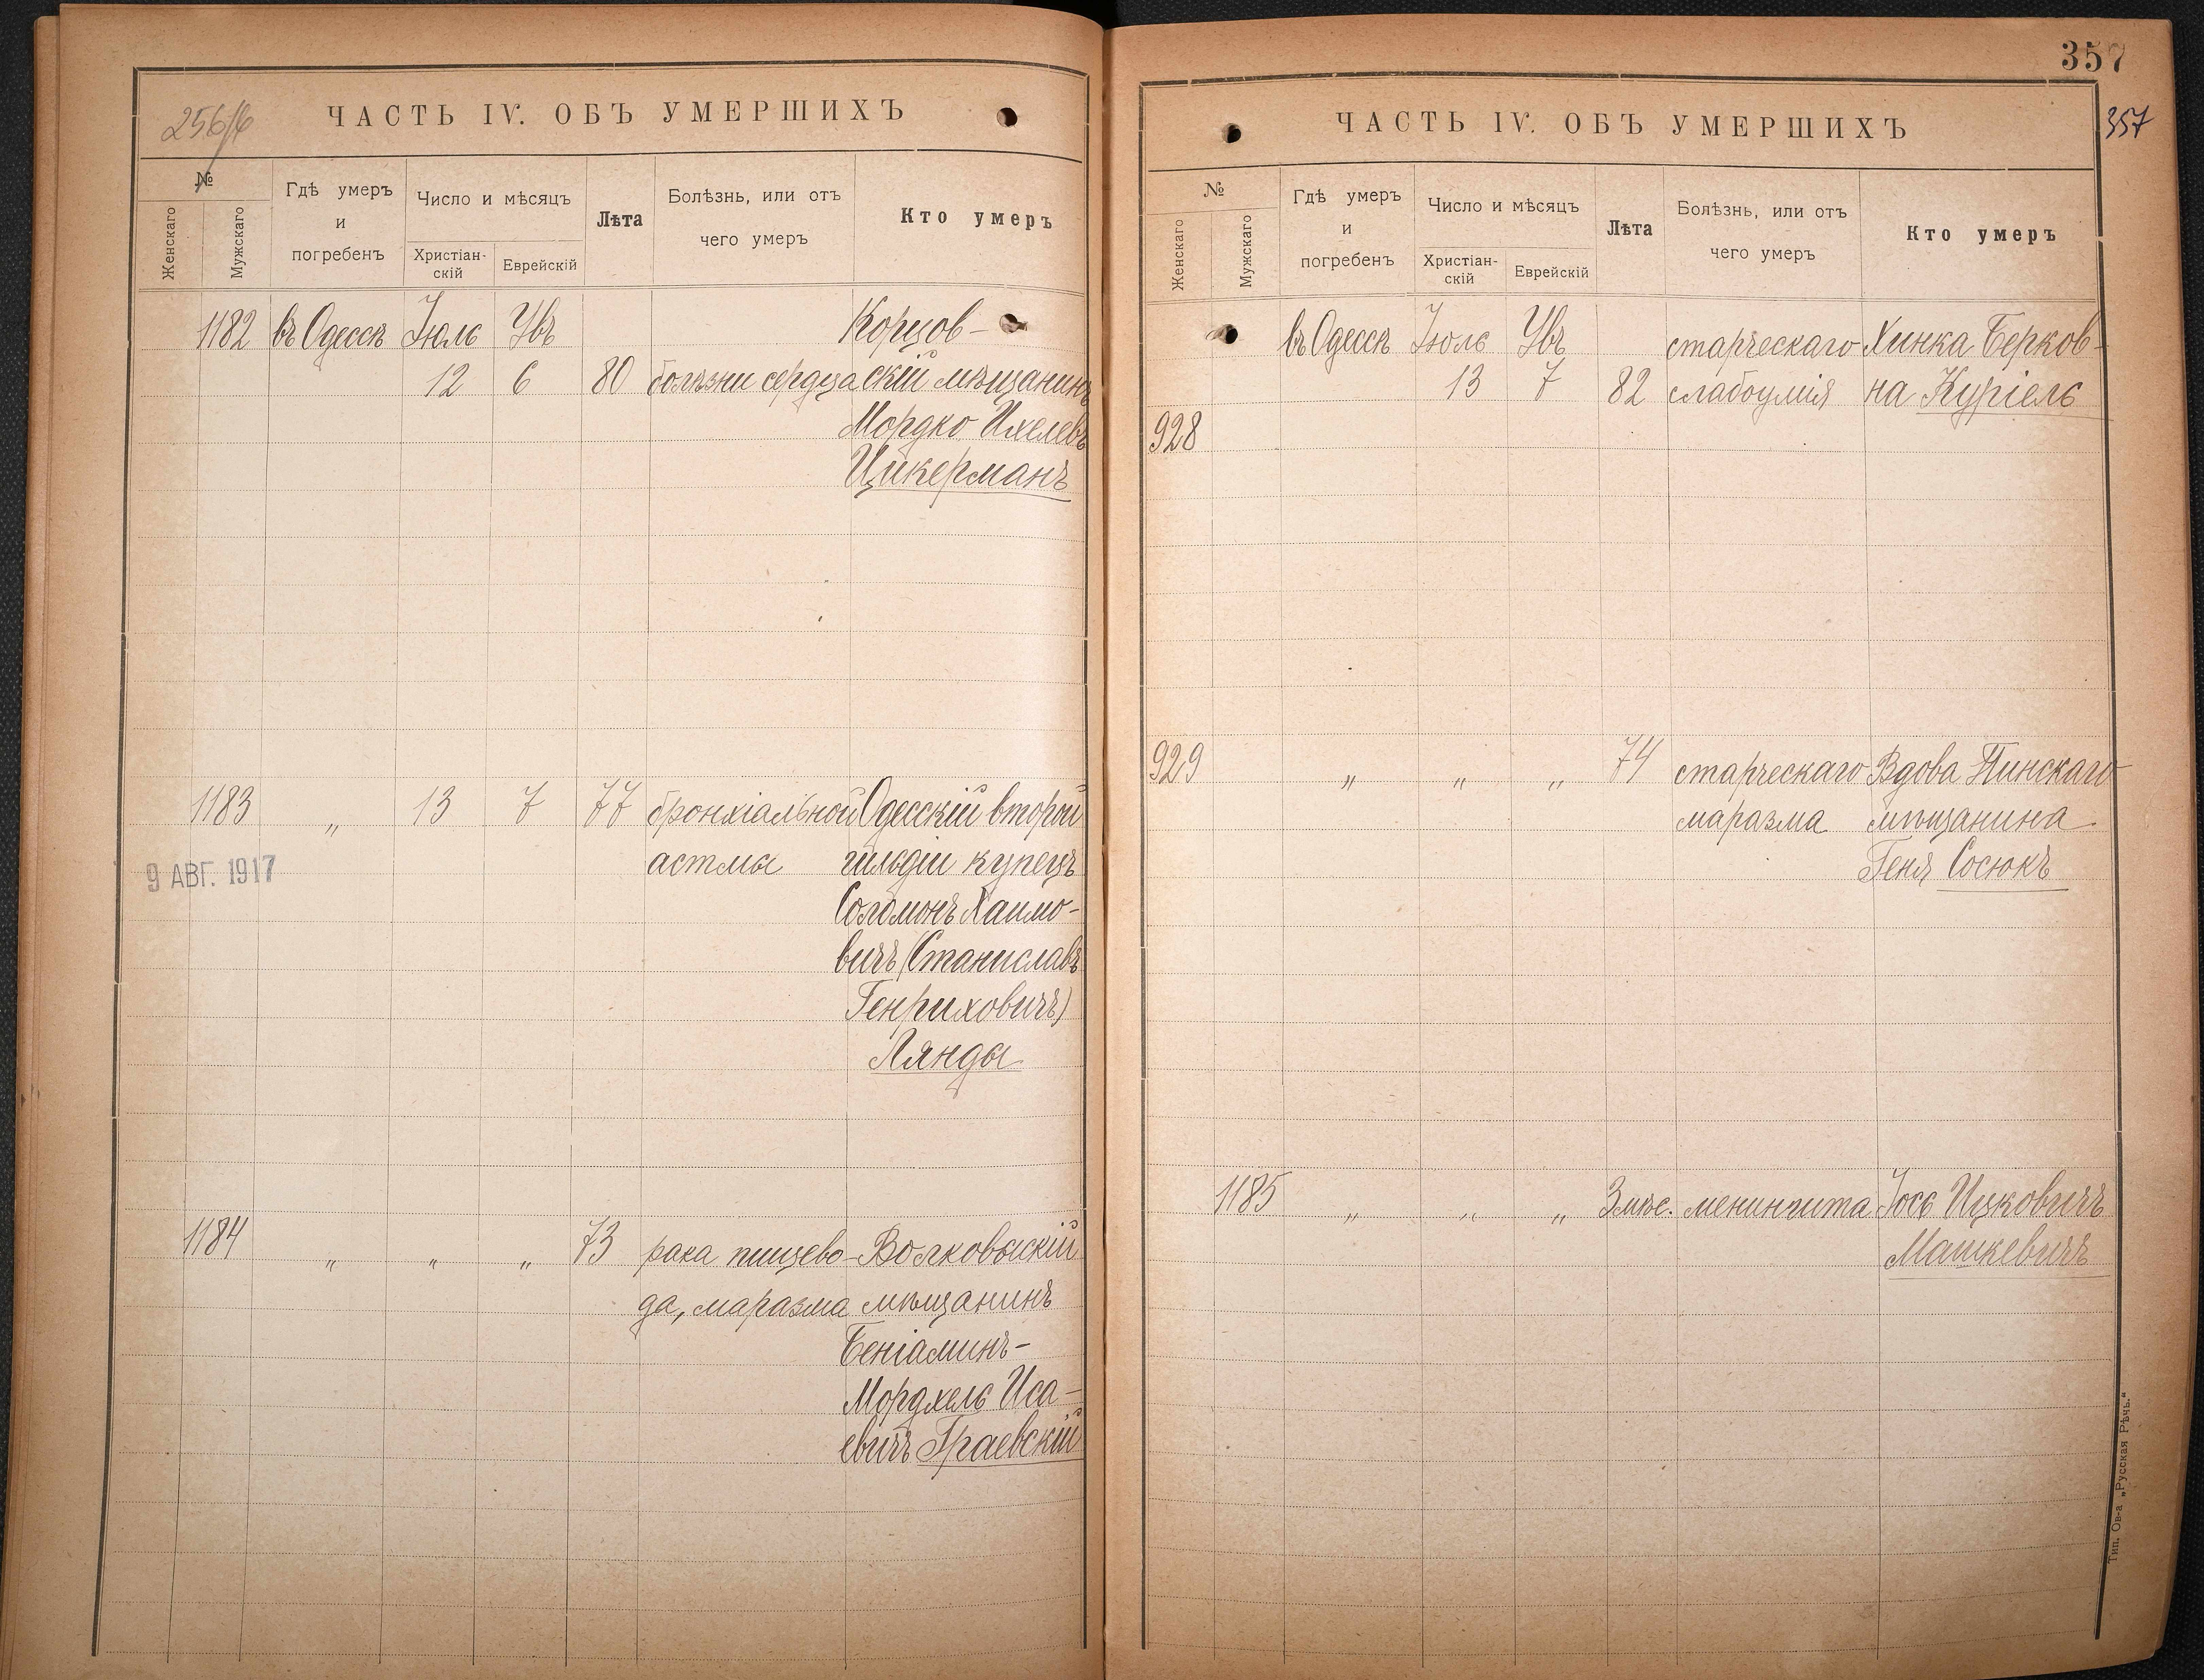 256/6
ЧАСТЬ IV. ОБЪ УМЕРШИХЪ
№
Женскаго
Мужскаго
Гдѣ умеръ
и
погребенъ
Число и мѣсяцъ
Христіан-
скій
Еврейскій
Лѣта
Болѣзнь, или отъ
чего умеръ
Кто умеръ
1182 въ Одессѣ Іюль Увъ Корцов-
12 6 80 болѣзни сердца скій мѣщанинъ
Мордко Ихелевъ
Цукерманъ
1183 „ 13 7 77 бронхіальной Одесскій второй
астмы гильдіи купецъ
9 АВГ. 1917
Соломонъ Хаимо-
вичъ (Станиславъ
Генриховичъ)
Лянды
1184 „ „ „ 73 рака пищево- Волковыскій
да, маразма мѣщанинъ
Беніаминъ-
Мордхель Иса-
евичъ Граевскій
357
357
ЧАСТЬ IV. ОБЪ УМЕРШИХЪ
№
Женскаго
Мужскаго
Гдѣ умеръ
и
погребенъ
Число и мѣсяцъ
Христіан-
скій
Еврейскій
Лѣта
Болѣзнь, или отъ
чего умеръ
Кто умеръ
въ Одессѣ Іюль Увъ старческаго Хинка Берков-
13 7 82 слабоумія на Куріель
928
929 „ „ „ 74 старческаго Вдова Пинскаго
маразма мѣщанина
Геня Сосюкъ
1185 „ „ „ 3 мѣс. менингита Іось Ицковичъ
Машкевичъ
Тип. Ов-а „Русская Рѣчь.“